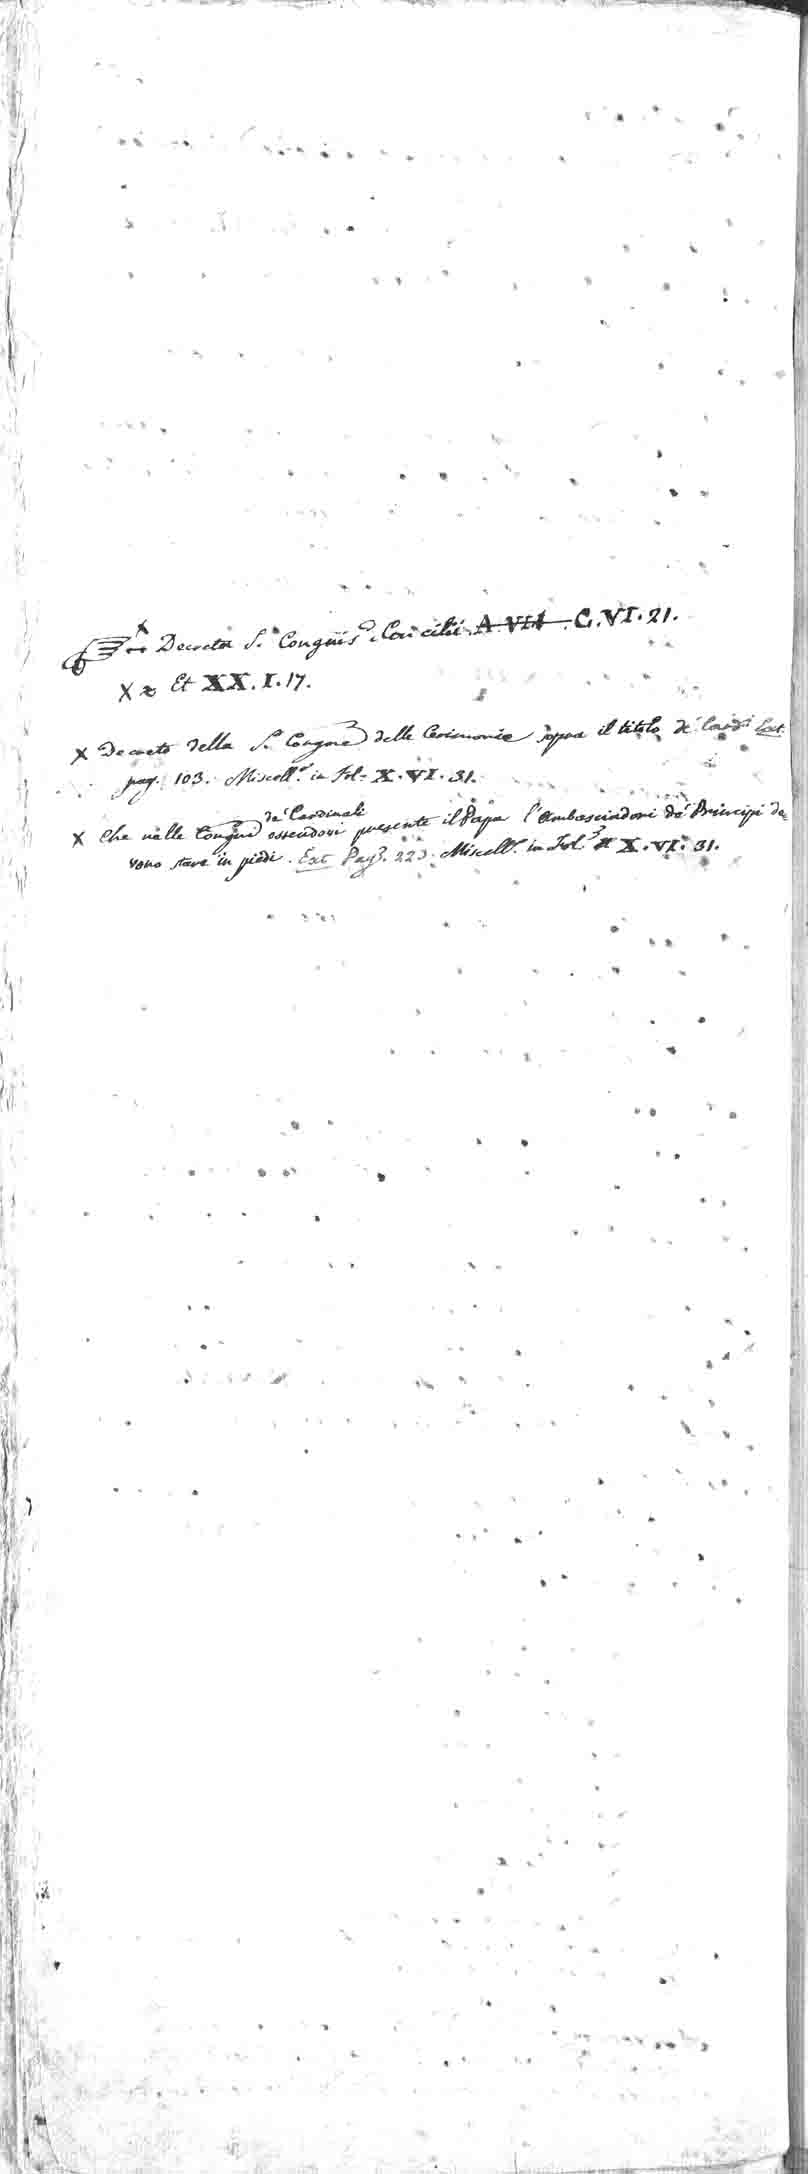 X
Decreta S. Congñis Concilii A VII C.VI.21.
X Et XX.I.17.
X Decreto della S. Congne delle Cerimonie sopra il titolo de' Card.i Ext.
pag. 103. Miscell. in Fol. X.VI.31.
de' Cardinali
X Che nelle Congni essendovi presente il Papa l'Ambasciadori de' Principi de=
vono stare in piedi. Ext Pag. 223. Miscell. in Fol. X.VI.31.